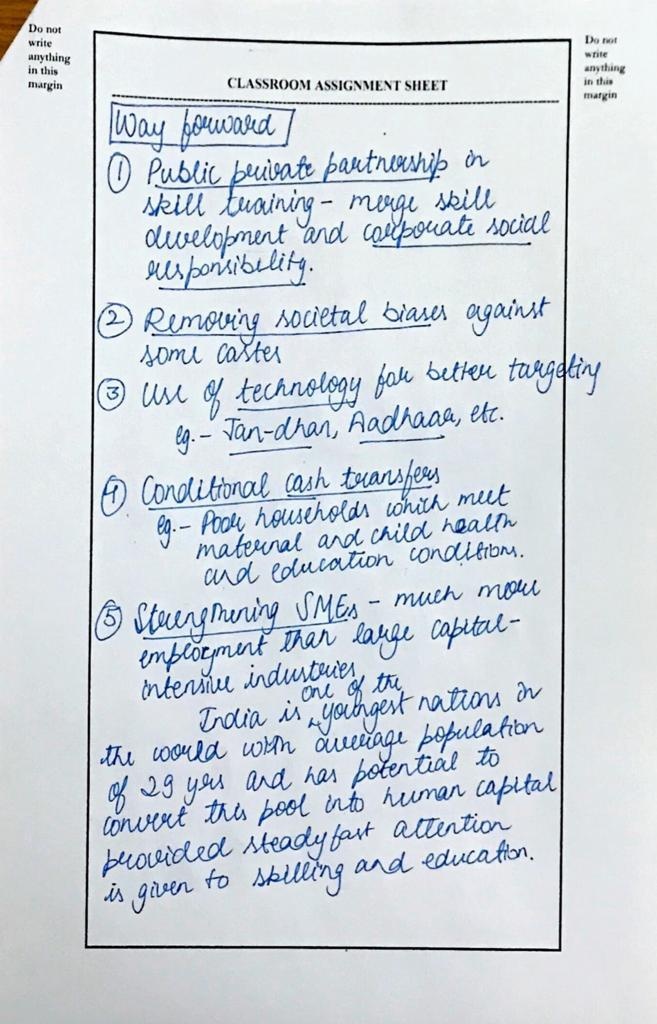 Do not
write
anything
in this
margin
Do not
write
anything
in this
margin
CLASSROOM ASSIGNMENT SHEET
Way forward
① Public private partnership in
skill training - merge skill
development and corporate social
responsibility.
② Removing societal biases against
some castes
③ Use of technology for better targeting
eg. - Jan-dhan, Aadhaar, etc.
④ Conditional cash transfers
eg. - Poor households which meet
maternal and child health
and education conditions.
⑤ Strengthening SMEs - much more
employment than large capital-
intensive industries
India is one of the youngest nations in
the world with average population
of 29 yrs and has potential to
convert this pool into human capital
provided steadyfast attention
is given to skilling and education.